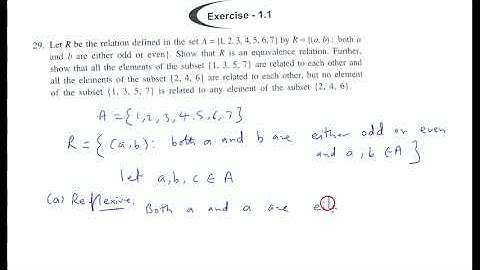 Exercise - 1.1
29. Let R be the relation defined in the set A = {1, 2, 3, 4, 5, 6, 7} by R = {(a, b) : both a
and b are either odd or even}. Show that R is an equivalence relation. Further,
show that all the elements of the subset {1, 3, 5, 7} are related to each other and
all the elements of the subset {2, 4, 6} are related to each other, but no element
of the subset {1, 3, 5, 7} is related to any element of the subset {2, 4, 6}.
A = {1,2,3,4,5,6,7}
R = { (a,b) : both a and b are either odd or even
and a,b ∈ A }
let a,b,c ∈ A
(a) Reflexive: Both a and a are eit